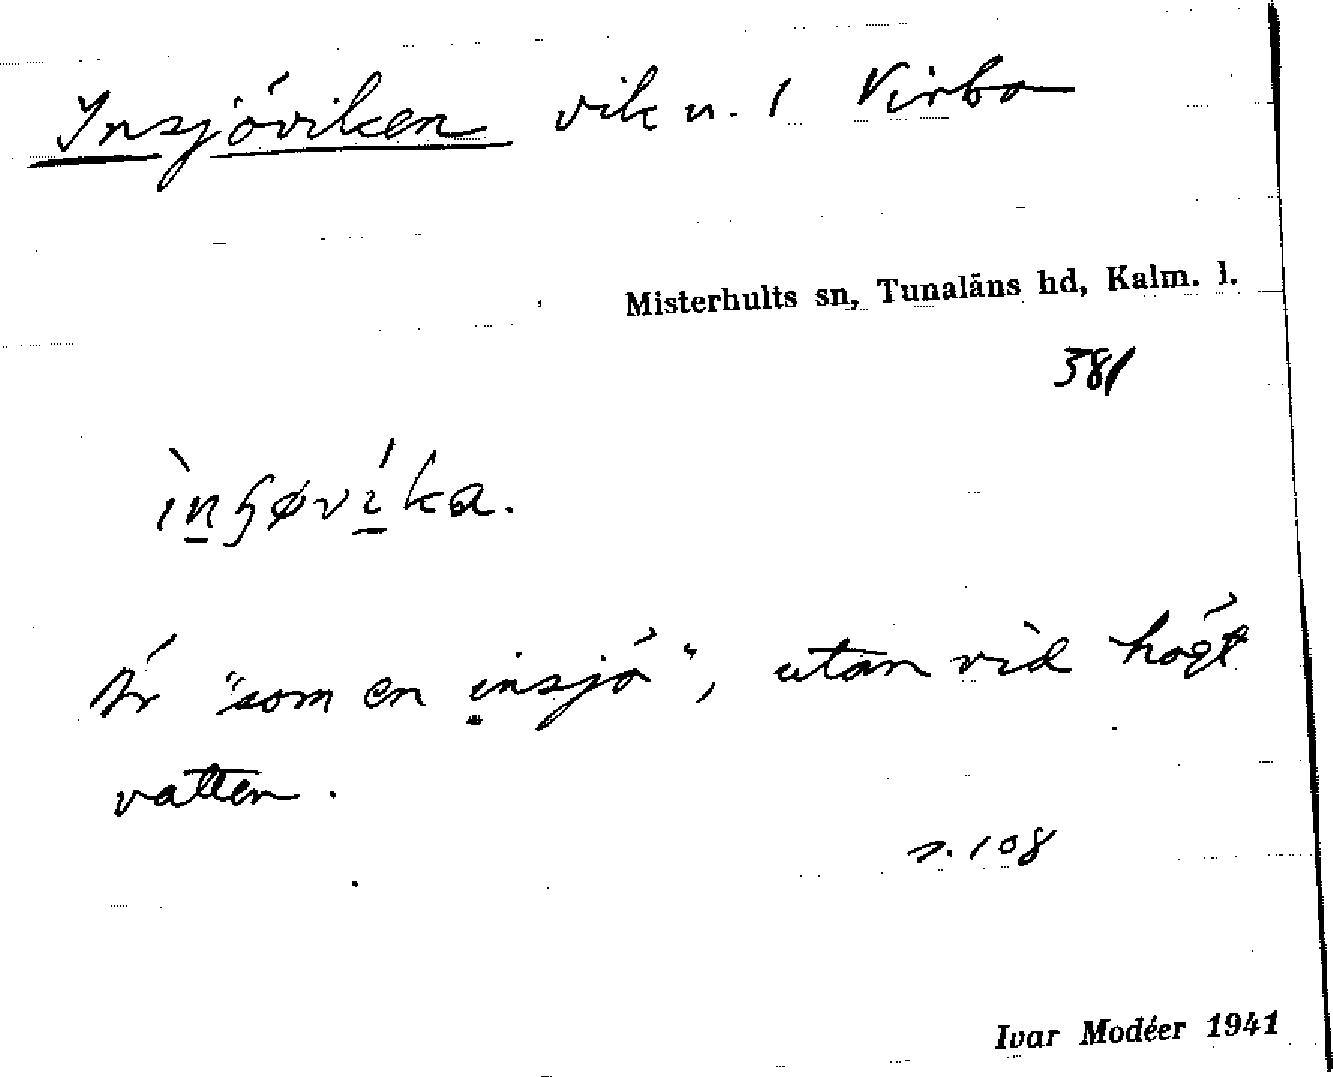 Insjöviken vik u. 1 Virbo
Misterhults sn, Tunaläns hd, Kalm. l.
381
ìnʃøvíka.
Är "som en insjö", utan vid högt
vatten.
s. 108
Ivar Modéer 1941